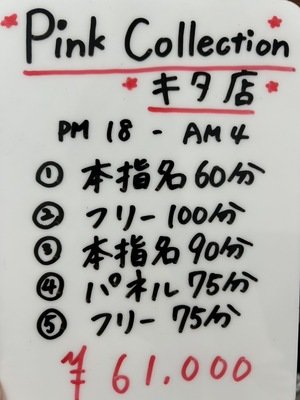 Pink Collection
キタ店
PM 18 - AM 4
① 本指名 60分
② フリー 100分
③ 本指名 90分
④ パネル 75分
⑤ フリー 75分
¥ 61.000